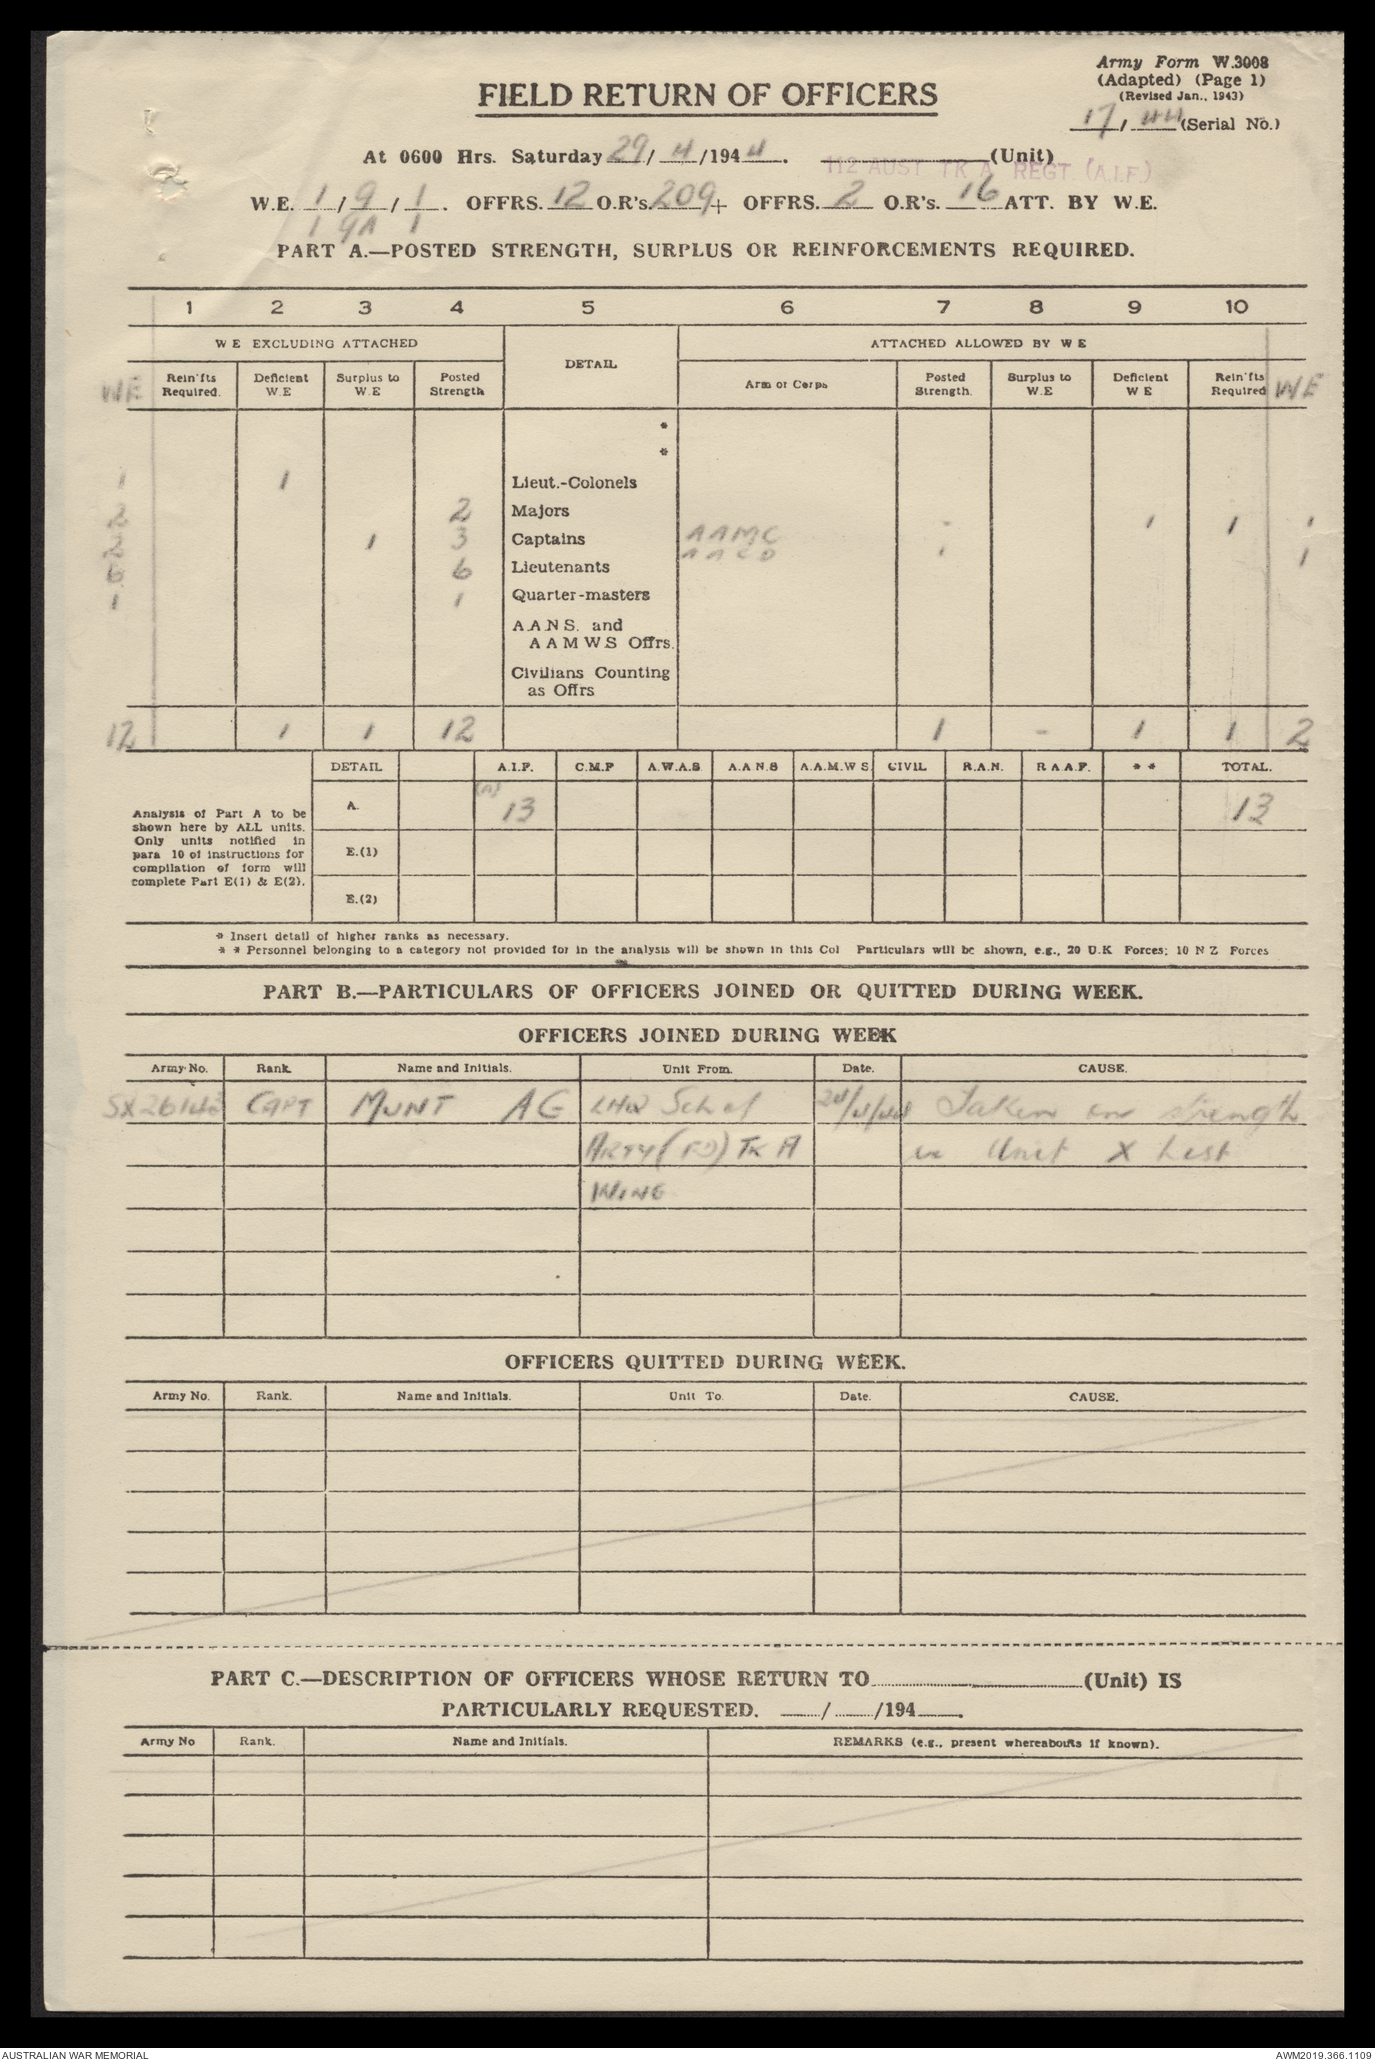 Army Form W.3008
(Adapted) (Page 1)
(Revised Jan., 1943)
17/44 (Serial No.)
FIELD RETURN OF OFFICERS
At 0600 Hrs. Saturday 29/4/1944. (Unit)
112 AUST TK A REGT. (A.I.F.)
W.E. 1/9/1. OFFRS. 12 O.R's. 209 + OFFRS. 2 O.R's. 16 ATT. BY W.E.
1 9A 1
PART A.—POSTED STRENGTH, SURPLUS OR REINFORCEMENTS REQUIRED.
1 2 3 4 5 6 7 8 9 10
W E EXCLUDING ATTACHED DETAIL ATTACHED ALLOWED BY W E
WE Rein'fts Required. Deficient W.E Surplus to W.E Posted Strength Arm or Corps Posted Strength. Surplus to W.E Deficient W E Rein'fts Required WE
*
*
1 1 Lieut.-Colonels
2 2 Majors
2 1 3 Captains AAMC - 1 1 1
AACD 1 1
6 6 Lieutenants
1 1 Quarter-masters
A.A.N.S. and
A A M W S Offrs.
Civilians Counting
as Offrs
12 1 1 12 1 - 1 1 2
DETAIL A.I.F. C.M.F A.W.A.S A.A.N.S A.A.M.W S CIVIL R.A.N. R A A.F. * * TOTAL.
Analysis of Part A to be shown here by ALL units. Only units notified in para 10 of instructions for compilation of form will complete Part E(1) & E(2).
A. (A) 13 13
E.(1)
E.(2)
* Insert detail of higher ranks as necessary.
* * Personnel belonging to a category not provided for in the analysis will be shown in this Col Particulars will be shown, e.g., 20 U.K Forces; 10 N Z Forces
PART B.—PARTICULARS OF OFFICERS JOINED OR QUITTED DURING WEEK.
OFFICERS JOINED DURING WEEK
Army No. Rank. Name and Initials. Unit From. Date. CAUSE.
SX26143 CAPT MUNT AG LHQ School 24/4/44 Taken on strength
ARTY (FD) TK A on Unit X List
WING
OFFICERS QUITTED DURING WEEK.
Army No. Rank. Name and Initials. Unit To. Date. CAUSE.
PART C.—DESCRIPTION OF OFFICERS WHOSE RETURN TO (Unit) IS
PARTICULARLY REQUESTED. / /194 .
Army No Rank. Name and Initials. REMARKS (e.g., present whereabouts if known).
AUSTRALIAN WAR MEMORIAL
AWM2019.366.1109